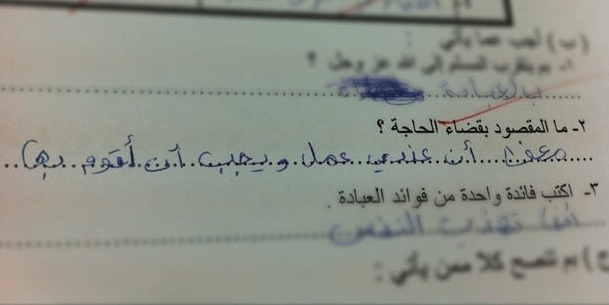 (ب) أجب عما يأتي :
١- بم يتقرب المسلم إلى الله عز وجل ؟
بالعبادة
٢- ما المقصود بقضاء الحاجة ؟
معنى أن عندي عمل ويجب أن أقوم بها
٣- اكتب فائدة واحدة من فوائد العبادة .
أنها تهذب النفس
ج) بم تنصح كلا ممن يأتي :